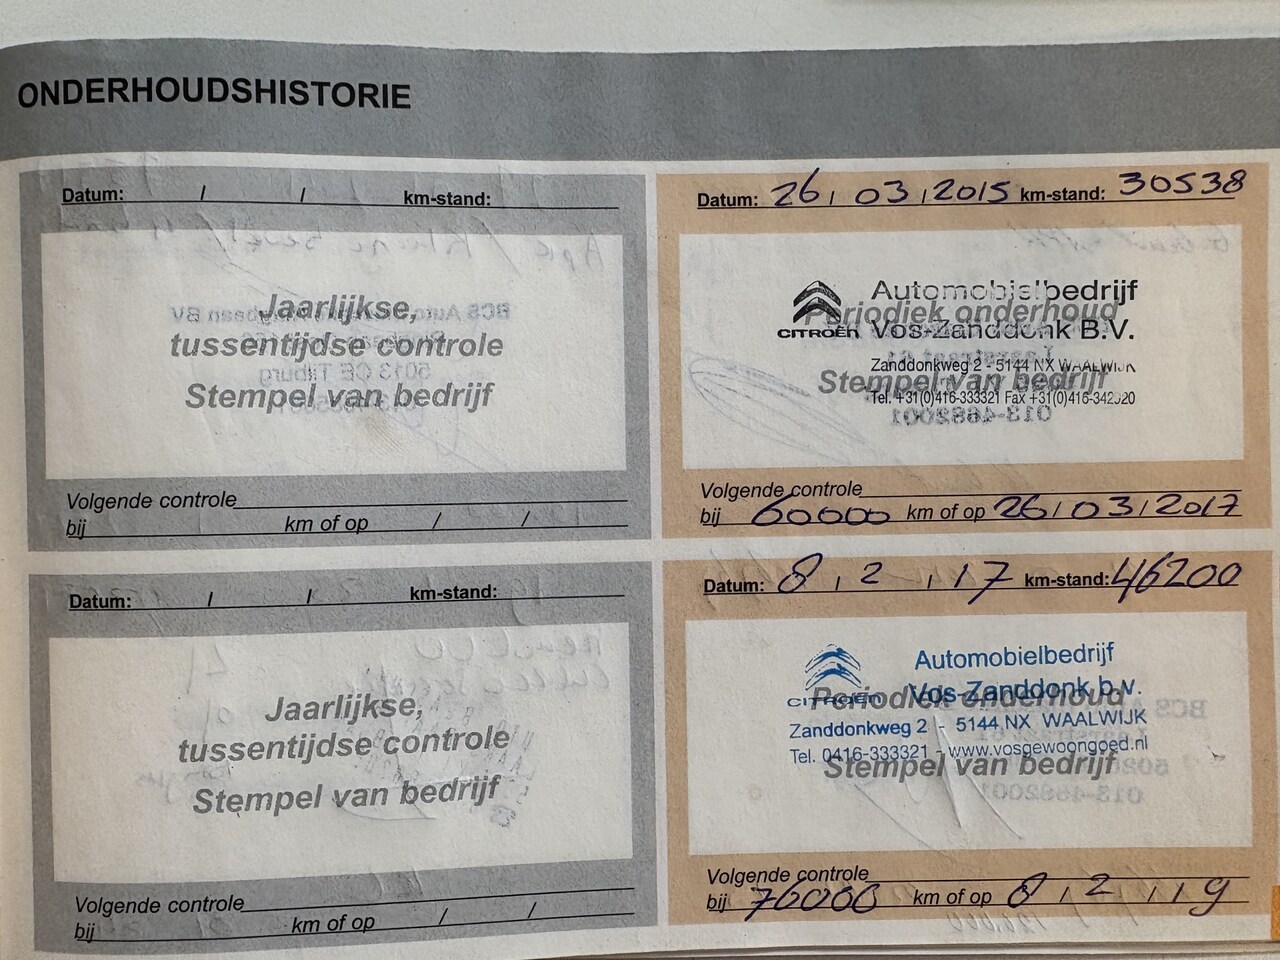 ONDERHOUDSHISTORIE
Datum: / / km-stand:
Jaarlijkse,
tussentijdse controle
Stempel van bedrijf
Volgende controle
bij km of op / /
Datum: 26 / 03 / 2015 km-stand: 30538
Automobielbedrijf
Periodiek onderhoud
CITROËN Vos-Zanddonk B.V.
Zanddonkweg 2 - 5144 NX WAALWIJK
Stempel van bedrijf
Tel. +31(0)416-333321 Fax +31(0)416-342020
Volgende controle
bij 60000 km of op 26 / 03 / 2017
Datum: / / km-stand:
Jaarlijkse,
tussentijdse controle
Stempel van bedrijf
Volgende controle
bij km of op / /
Datum: 8 / 2 / 17 km-stand: 46200
Automobielbedrijf
CITROËN Vos-Zanddonk b.v.
Periodiek onderhoud
Zanddonkweg 2 - 5144 NX WAALWIJK
Tel. 0416-333321 - www.vosgewoongoed.nl
Stempel van bedrijf
Volgende controle
bij 76000 km of op 8 / 2 / 19